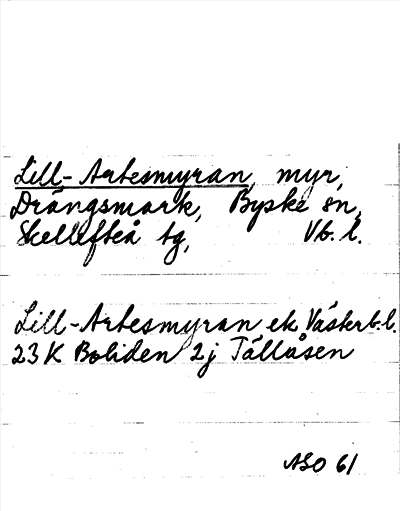 Lill-Artesmyran, myr,
Drängsmark, Byske sn,
Skellefteå tg, Vb. l.
Lill-Artesmyran ek Västerb. l.
23 K Boliden 2j Tällåsen
ASO 61